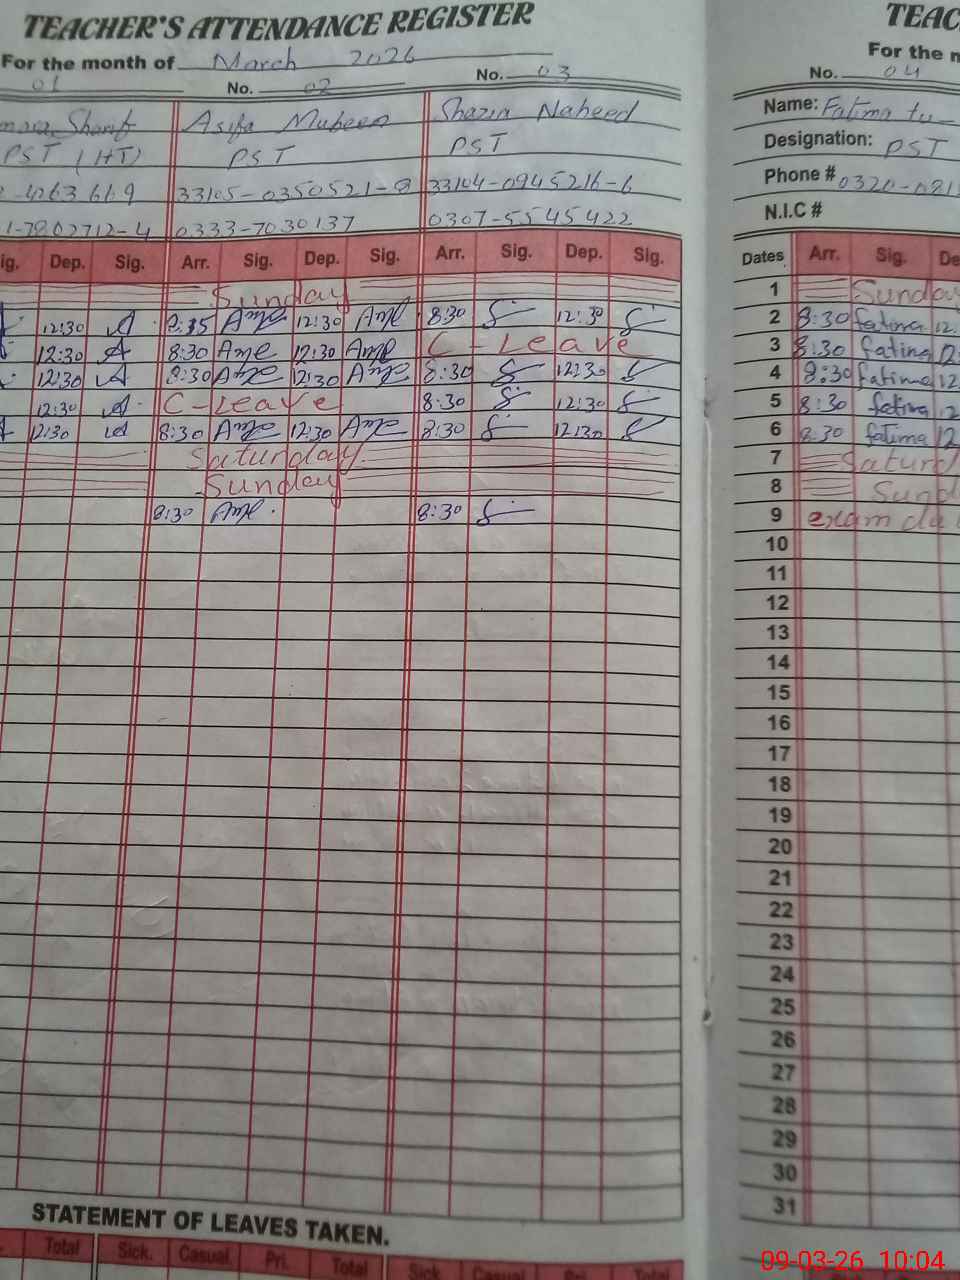 TEACHER'S ATTENDANCE REGISTER
For the month of March 2026
01 No. 02 No. 03
Sharif Asifa Mubeen Shazia Naheed
PST (HT) PST PST
-4263669 33105-0350521-8 33104-0945216-6
1-7802712-4 0333-7030137 0307-5545422
ig. Dep. Sig. Arr. Sig. Dep. Sig. Arr. Sig. Dep. Sig.
Sunday
12:30 8:35 12:30 8:30 12:30
12:30 8:30 12:30 C-Leave
12:30 8:30 12:30 8:30 12:30
12:30 C-Leave 8:30 12:30
12:30 8:30 12:30 8:30 12:30
Saturday
Sunday
8:30 8:30
STATEMENT OF LEAVES TAKEN.
Total Sick. Casual Pri. Total Sick. Casual Pri. Total
TEAC
For the m
No. 04
Name: Fatima tu
Designation: PST
Phone # 0320-081
N.I.C #
Dates Arr. Sig. De
1 Sunday
2 8:30 fatima 12:
3 8:30 fatima 12
4 8:30 fatima 12
5 8:30 fatima 12
6 8:30 fatima 12
7 Saturd
8 Sund
9 exam du
10
11
12
13
14
15
16
17
18
19
20
21
22
23
24
25
26
27
28
29
30
31
09-03-26 10:04